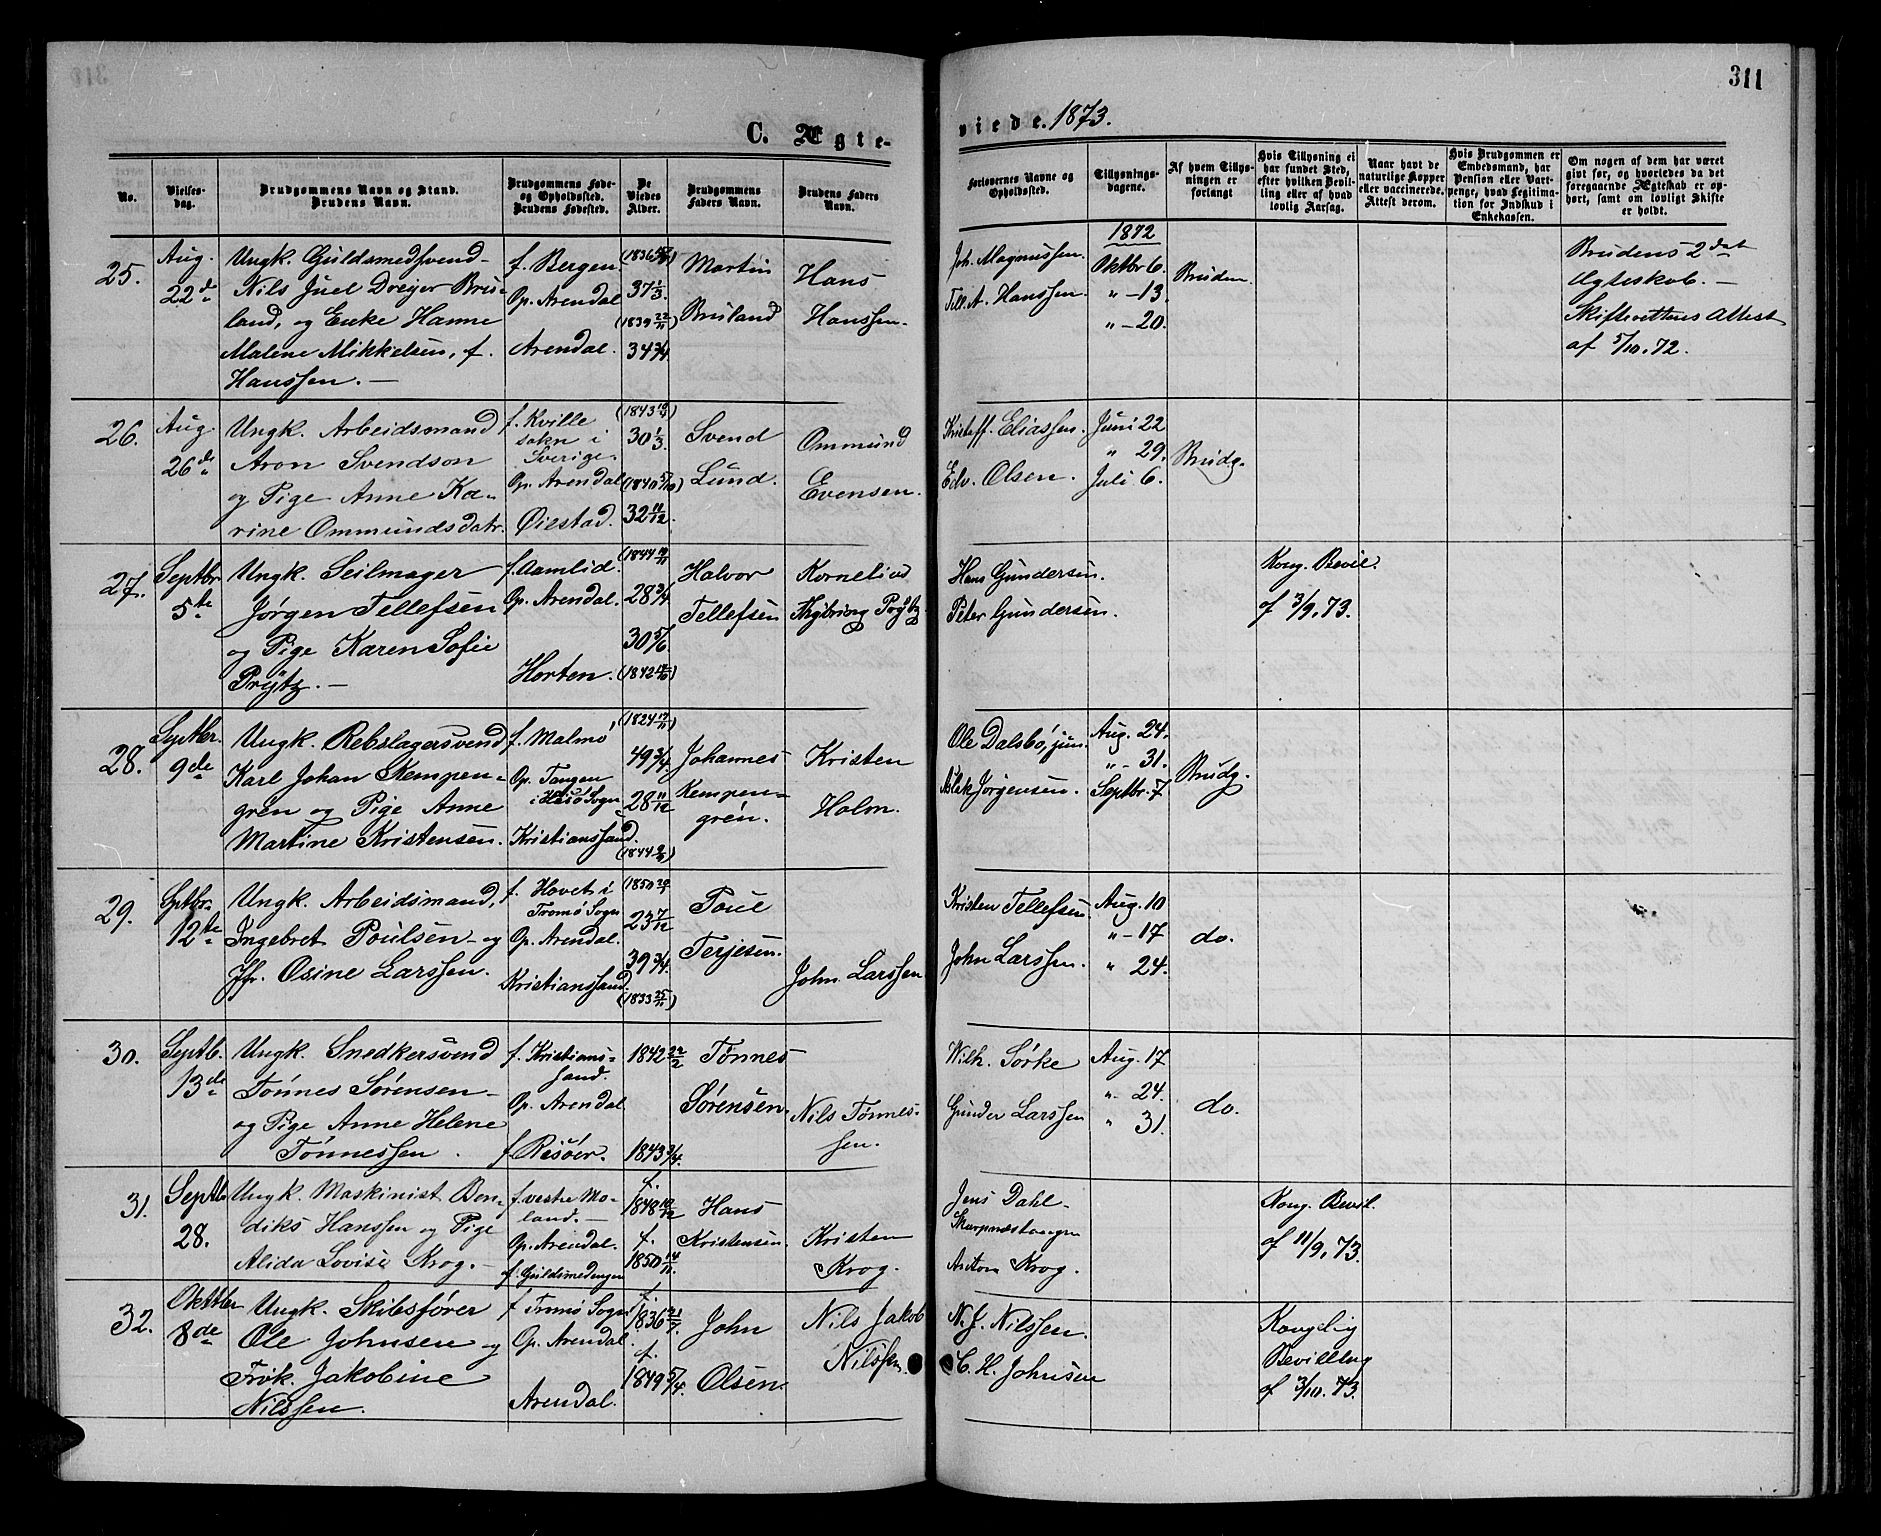 311
C. Ægte-
viede. 1873.
No.
Vielses-
dag.
Brudgommens Navn og Stand.
Brudens Navn.
Brudgommens Føde-
og Opholdssted.
Brudens Fødested.
De
Viedes
Alder.
Brudgommens
Faders Navn.
Brudens Faders
Navn.
Forlovernes Navne og
Opholdssted.
Tillysnings-
dagene.
Af hvem Tillys-
ningen er
forlangt
Hvis Tillysning ei
har fundet Sted,
efter hvilken Bevil-
ling eller af hvad
lovlig Aarsag.
Naar havt de
naturlige Kopper
eller vaccinerede.
Attest derom.
Hvis Brudgommen er
Embedsmand, har
Pension eller Vart-
penge, hvad Legitima-
tion for Indskud i
Enkekassen.
Om nogen af dem har været
gift før, og hvorledes da det
foregaaende Ægteskab er op-
hørt, samt om lovligt Skifte
er holdt.
25.
Aug.
22de
Ungk. Guldsmedsvend
Nils Juel Dreyer Bru-
land, og Enke Hanne
Malene Mikkelsen, f.
Hanssen. —
f. Bergen.
Op. Arendal
Arendal.
37 1/3.
(1839 22/11)
34 3/4
Martin
Bruland
Hans
Hanssen.
Joh. Magnussen.
Tell. A. Hanssen.
1872
Oktbr 6.
" - 13.
" - 20.
Bruden
Brudens 2det
Ægteskab. —
Skifterettens Attest
af 5/10. 72.
26.
Aug.
26de
Ungk. Arbeidsmand
Aron Svendson
og Pige Anne Ka-
rine Ommundsdatr.
f. Kville
sokn i
Sverige.
Op. Arendal
Øiestad.
30 1/3.
(1840 5/10)
32 11/12.
Svend
Lund.
Ommund
Evensen.
Kristoff. Eliassen.
Edv. Olsen.
Juni 22
" 29.
Juli 6.
Brudg.
27.
Septbr
5te
Ungk. Seilmager
Jørgen Tellefsen
og Pige Karen Sofie
Prytz. —
f. Aamlid.
Op. Arendal.
Horten.
28 3/4
30 5/6
Halvor
Tellefsen
Kornelius
Prytz
Hans Gundersen.
Peter Gundersen.
Kong. Bevil.
af 3/9. 73.
28.
Septbr.
9de
Ungk. Rebslagersvend
Karl Johan Kempen-
gren og Pige Anne
Martine Kristensen.
f. Malmø
Op. Tangen
i Hisø Sogn
Kristianssand.
(1824 17/11)
49 3/4
28 11/12
Johannes
Kempen-
gren.
Kristen
Holm.
Ole Dalsbø, jun.
Aslak Jørgensen.
Aug. 24.
" - 31.
Septbr. 7
Brudg.
29.
Sptbr.
12te
Ungk. Arbeidsmand,
Ingebret Poulsen og
Jfr. Osine Larssen.
f. Hovet i
Tromø Sogn
Op. Arendal.
Kristianssand.
23 7/12
39 3/4.
(1833 25/11)
Poul
Terjesen.
John Larssen
Kristen Tellefsen
John Larssen.
Aug. 10
" - 17
" 24.
do.
30.
Septb.
13de
Ungk. Snedkersvend
Tønnes Sørensen
og Pige Anne Helene
Tønnessen.
f. Kristians-
sand.
Op. Arendal
f Risøer.
1842 22/2
1843 3/4.
Tønnes
Sørensen.
Nils Tønnes-
sen.
Wilh. Sørke
Gunder Larssen
Aug. 17
" 24.
" 31.
do.
31.
Septb
28.
Ungk. Maskinist Ben-
diks Hanssen og Pige
Alida Lovise Krog. —
f. vestre Mo-
land. —
Op. Arendal.
f. Guldsmedengen
f.
1848 19/12
f.
1850 14/11.
Hans
Kristensen.
Kristen
Krog.
Jens Dahl
Skarpnæstangen
Anton Krog.
Kong. Bevil.
af 11/9. 73.
32.
Oktbr
8de
Ungk. Skibsfører
Ole Johnsen og
Frøk. Jakobine
Nilssen.
f Tromø Sogn
Op. Arendal.
Arendal.
f.
1836 21/7.
f.
1849 5/4.
John
Olsen.
Nils Jakob
Nilssen.
N. J. Nilssen.
C. H. Johnsen
Kongelig
Bevilling
af 3/10. 73.